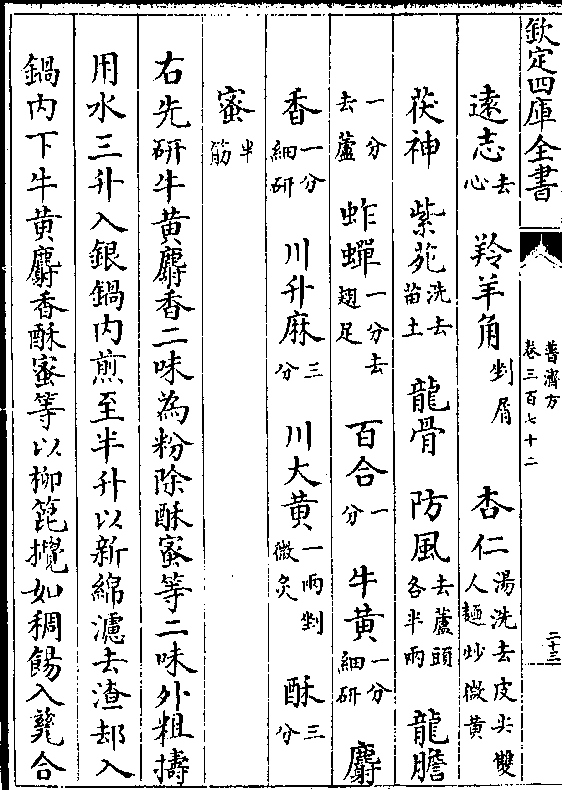 欽定四庫全書
普濟方
卷三百七十二
二十三
遠志去心 羚羊角剉屑 杏仁湯洗去皮尖雙人麵炒微黄
茯神 紫苑洗去苗土 龍骨 防風去蘆頭各半兩 龍膽
一分去蘆 蚱蟬一分去翅足 百合一分 牛黄一分細研 麝
香一分細研 川升麻三分 川大黄一兩剉微灸 酥三分
蜜半筋
右先研牛黄麝香二味為粉除酥蜜等二味外粗擣
用水三升入銀鍋内煎至半升以新綿濾去渣却入
鍋内下牛黄麝香酥蜜等以柳篦攪如稠餳入甆合